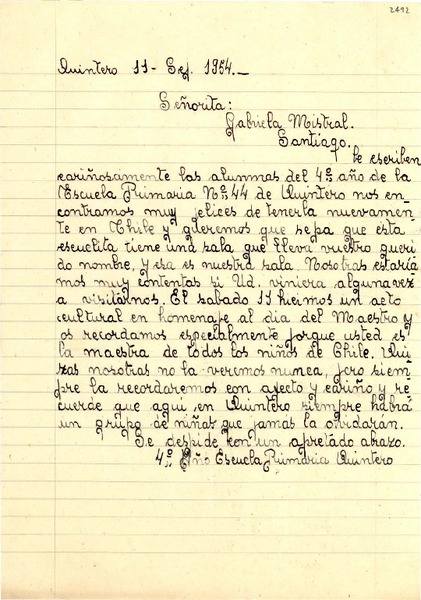 2492
Quintero 11- Sep. 1954.-
Señorita:
Gabriela Mistral.
Santiago.
te escriben
cariñosamente las alumnas del 4º año de la
Escuela Primaria Nº 44 de Quintero nos en-
contramos muy felices de tenerla nuevamen-
te en Chile y queremos que sepa que esta
escuelita tiene una sala que lleva vuestro queri
do nombre, y esa es nuestra sala. Nosotras estaría
mos muy contentas si Ud. viniera alguna vez
a visitarnos. El sabado 11 hicimos un acto
cultural en homenaje al dia del Maestro y
os recordamos especialmente porque usted es
la maestra de todos los niños de Chile. Qui
zas nosotras no la veremos nunca, pero siem
pre la recordaremos con afecto y cariño y re
cuerde que aqui en Quintero siempre habrá
un grupo de niñas que jamas la olvidarán.
Se despide con un apretado abrazo.
4º Año Escuela Primaria Quintero